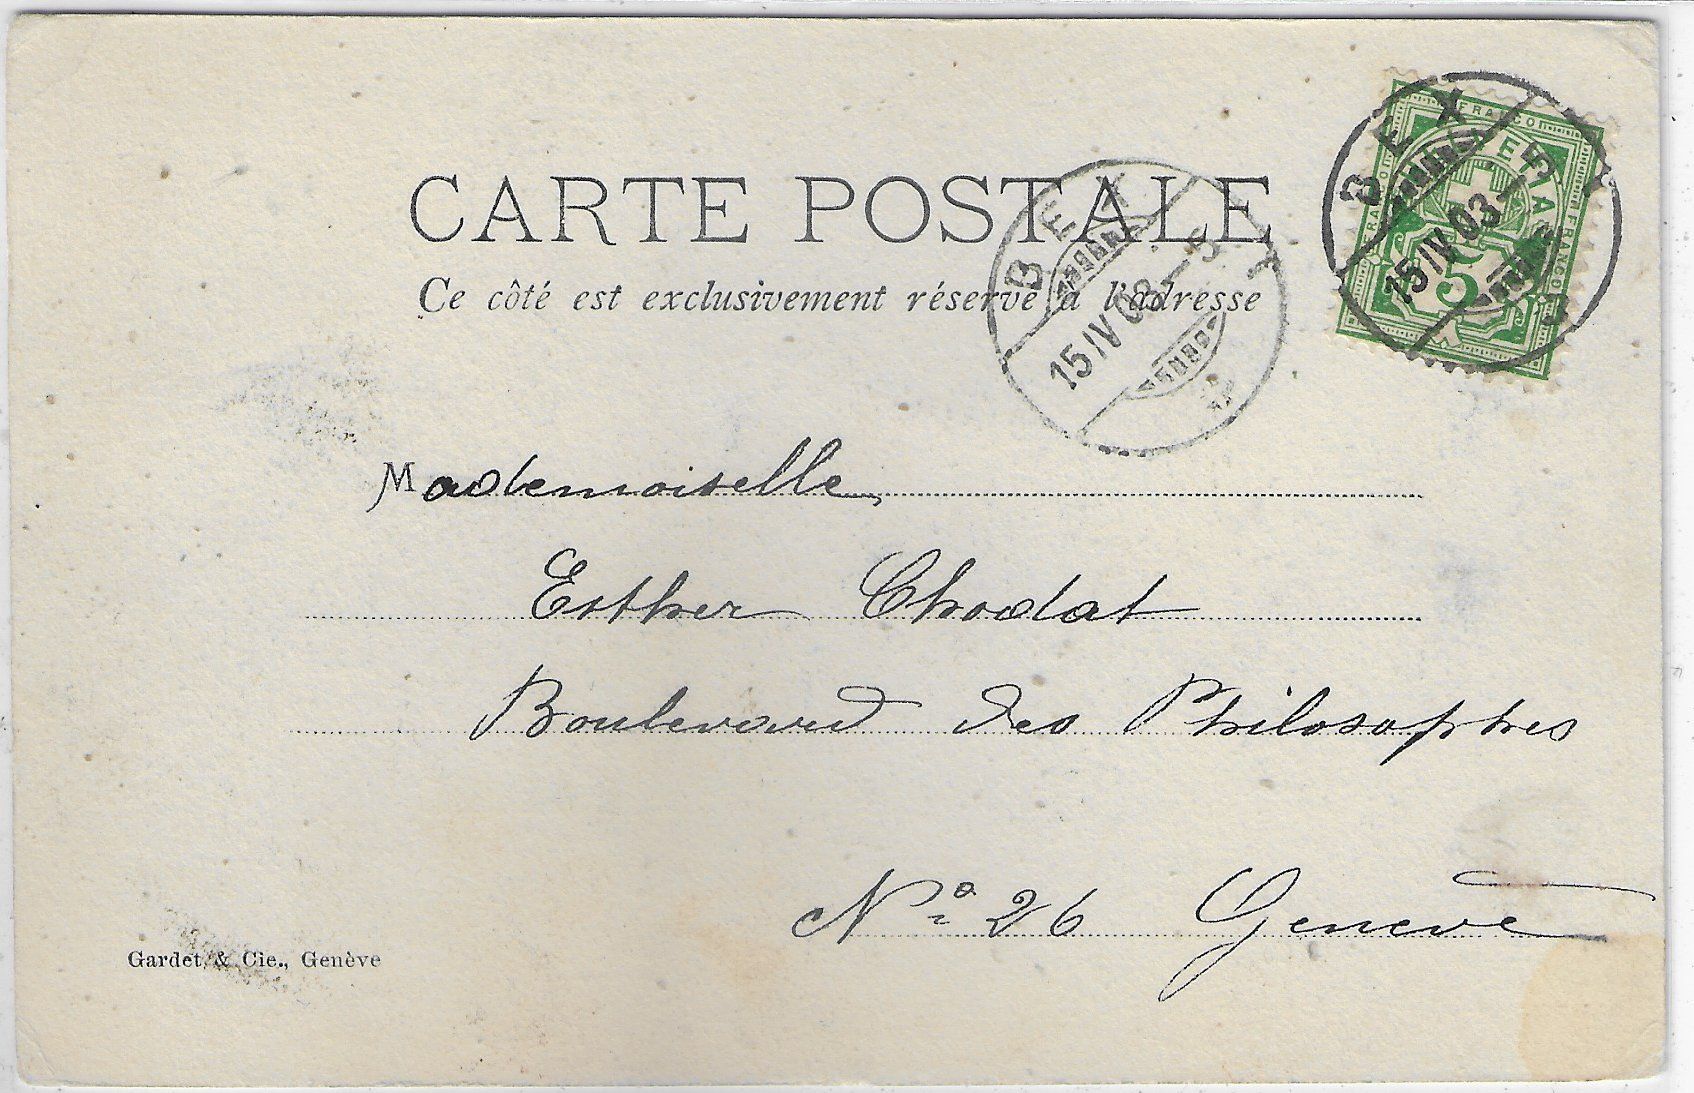 CARTE POSTALE
Ce côté est exclusivement réservé à l'adresse
BEX
15 IV 03–5
FRANCO
5
BEX
15 IV 03–5
Mademoiselle,
Esther Chodat
Boulevard des Philosophes
No 26 Genève
Gardet & Cie., Genève